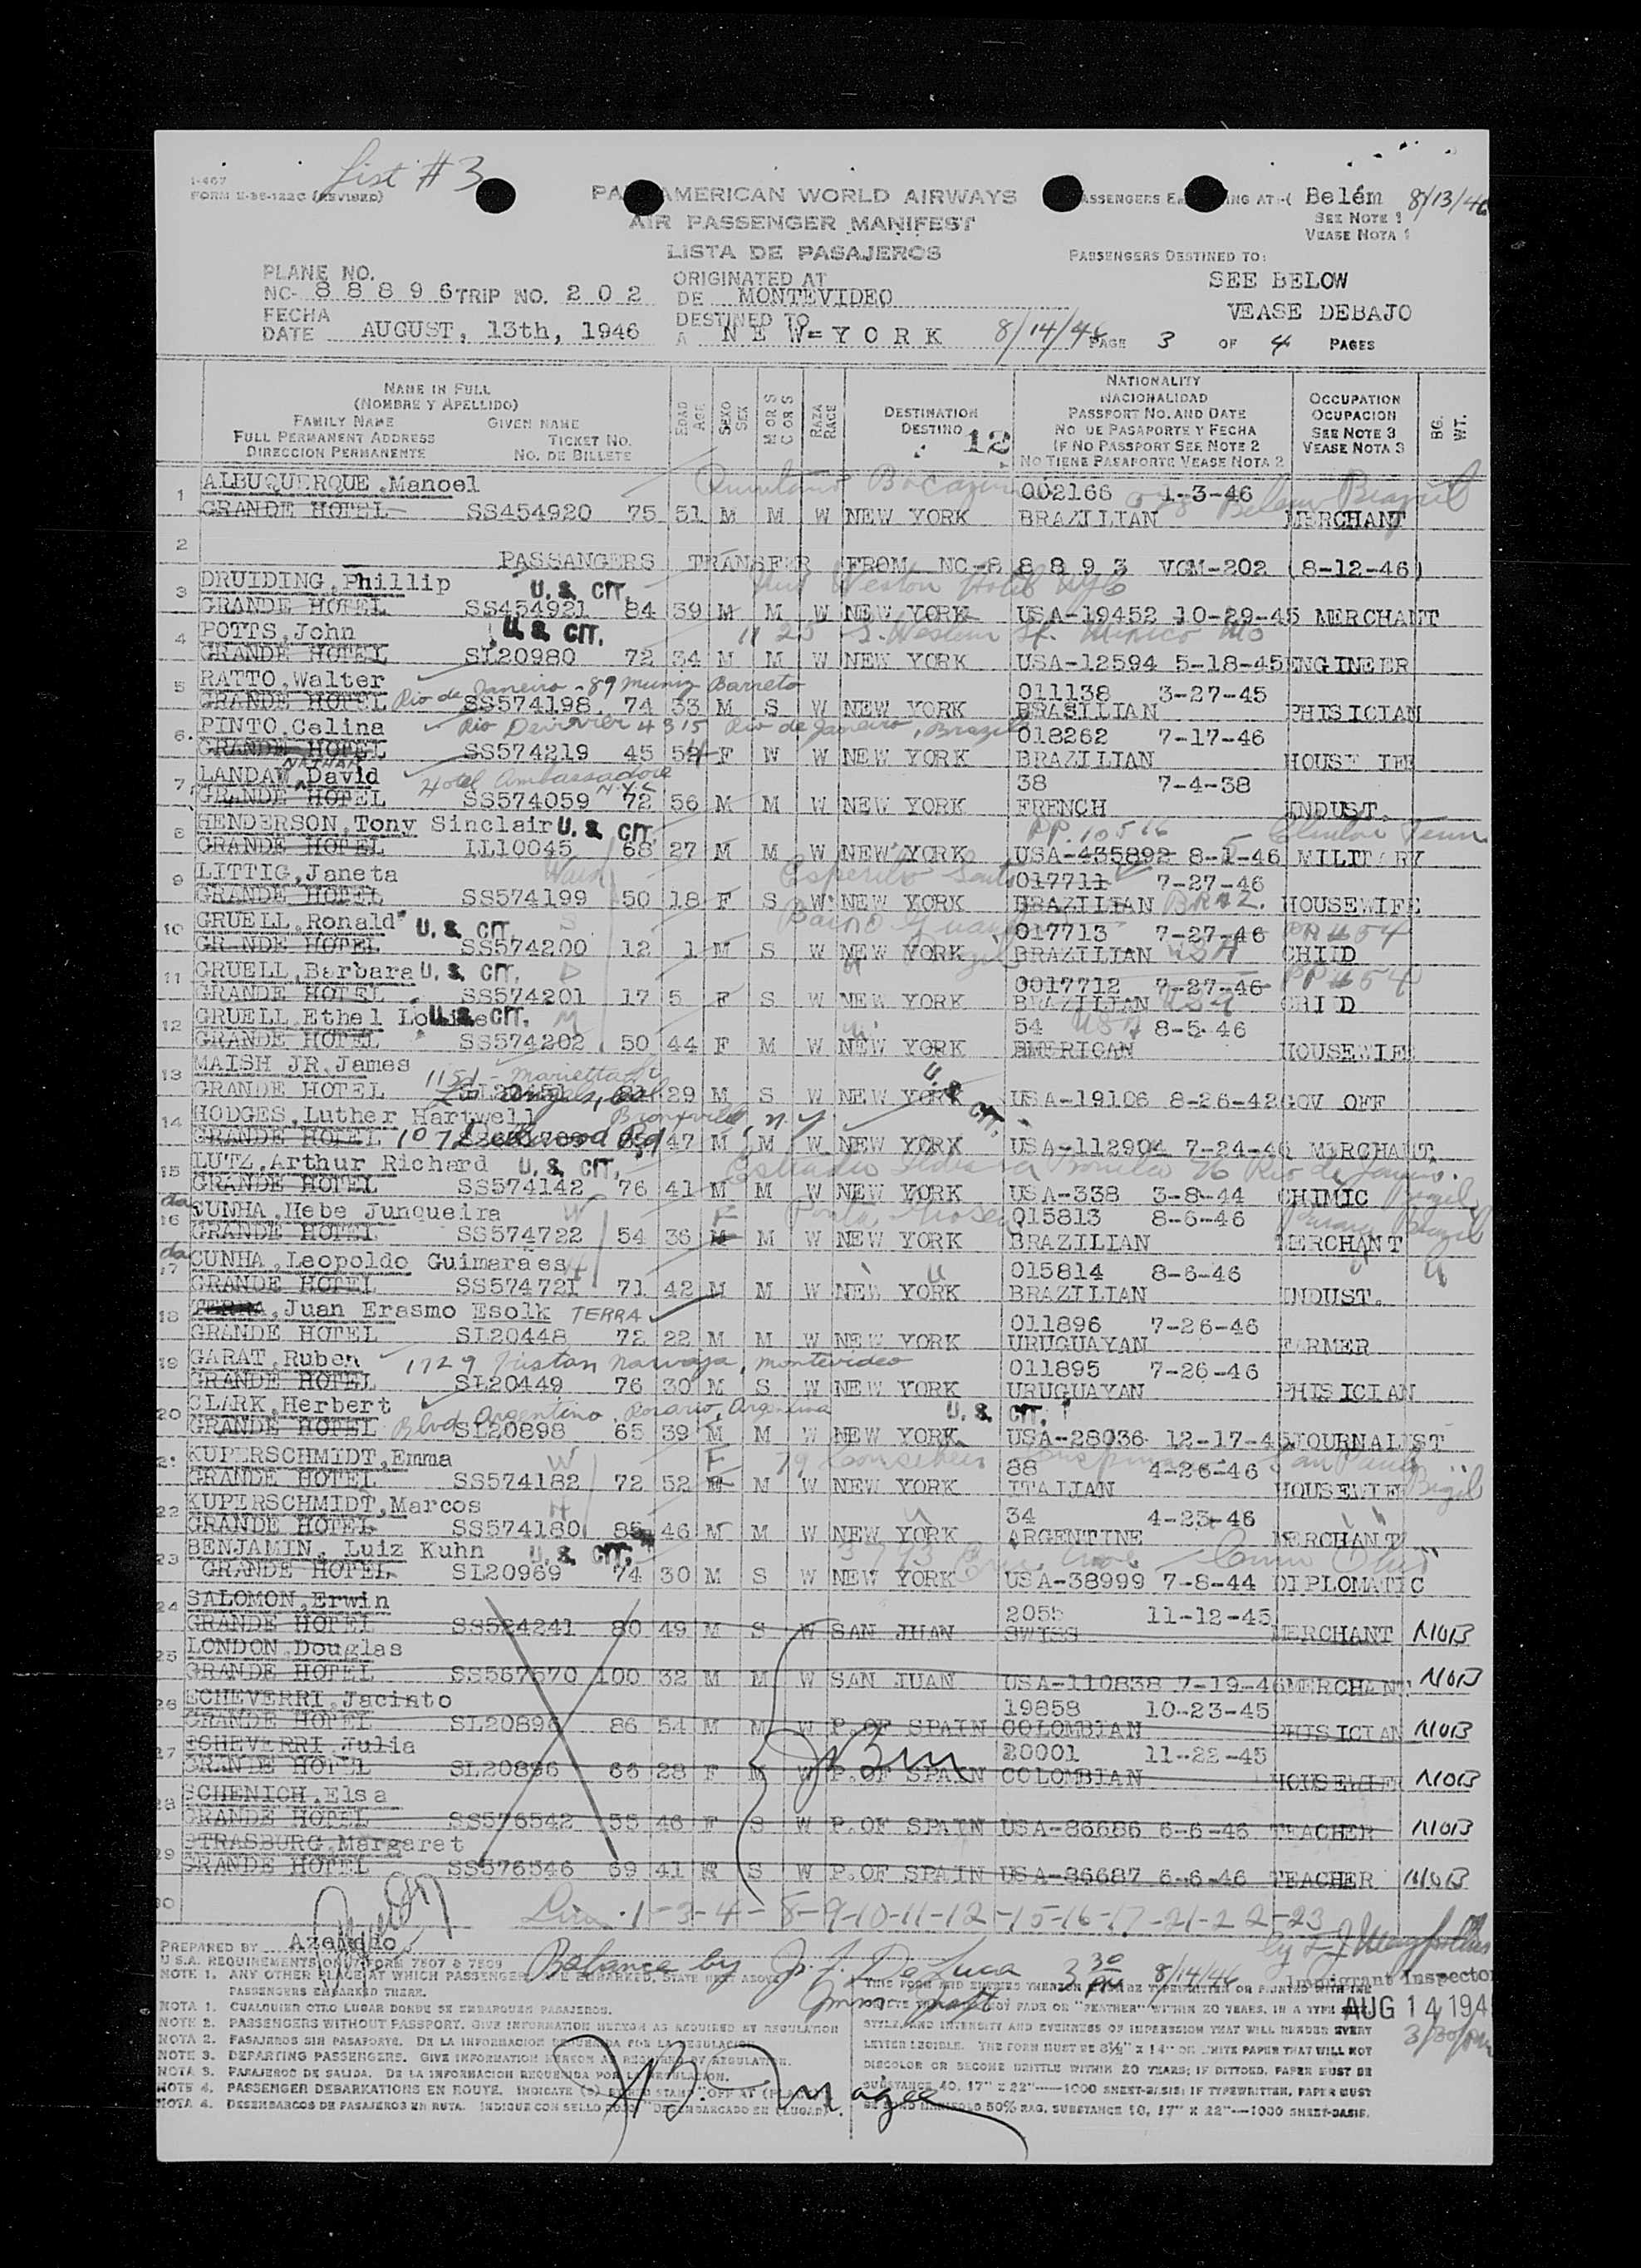 List # 3
I-467
FORM
PAN AMERICAN WORLD AIRWAYS
PASSENGERS E NG AT:-( Belém 8/13/46
SEE NOTE 1
VEASE NOTA 1
AIR PASSENGER MANIFEST
LISTA DE PASAJEROS
PASSENGERS DESTINED TO:
SEE BELOW
VEASE DEBAJO
PLANE NO.
NC- 8 8 8 9 6 TRIP NO. 2 0 2
ORIGINATED AT
DE MONTEVIDEO
FECHA
DATE AUGUST, 13th, 1946
DESTINED TO
A N E W=Y O R K 8/14/46
PAGE 3 OF 4 PAGES
NAME IN FULL
(NOMBRE Y APELLIDO)
FAMILY NAME GIVEN NAME
FULL PERMANENT ADDRESS TICKET NO.
DIRECCION PERMANENTE NO. DE BILLETE
EDAD AGE
SEXO SEX
M OR S C OR S
RAZA RACE
DESTINATION
DESTINO 12
NATIONALITY
NACIONALIDAD
PASSPORT NO. AND DATE
NO DE PASAPORTE Y FECHA
IF NO PASSPORT SEE NOTE 2
NO TIENE PASAPORTE VEASE NOTA 2
OCCUPATION
OCUPACION
SEE NOTE 3
VEASE NOTA 3
BG. WT.
1 ALBUQUERQUE,Manoel 002166 1-3-46 Belem Brazil
GRANDE HOTEL SS454920 75 51 M M W NEW YORK BRAZILIAN MERCHANT
2 PASSANGERS TRANSFER FROM NC-8 8 8 9 3 VCM-202 (8-12-46)
3 DRUIDING,Phillip U. S. CIT. Weston Hotel NYC
GRANDE HOTEL SS454921 84 59 M M W NEW YORK USA-19452 10-29-45 MERCHANT
4 POTTS,John U. S. CIT. 1125 S. Western St. Mexico Mo
GRANDE HOTEL SL20980 72 34 M M W NEW YORK USA-12594 5-18-45 ENGINEER
5 RATTO,Walter 011138 3-27-45
GRANDE HOTEL Rio de Janeiro - 89 Muniz Barreto SS574198 74 33 M S W NEW YORK BRASILIAN PHISICIAN
6 PINTO,Celina Rio de Janeiro, Brazil 018262 7-17-46
GRANDE HOTEL SS574219 45 54 F W W NEW YORK BRAZILIAN HOUSE IFE
NATHAN
7 LANDAW,David Hotel Ambassador NYC 38 7-4-38
GRANDE HOTEL SS574059 72 56 M M W NEW YORK FRENCH INDUST.
8 HENDERSON,Tony Sinclair U. S. CIT. PP. 10516 Clinton Tenn
GRANDE HOTEL IL10045 68 27 M M W NEW YORK USA-435892 8-1-46 MILITARY
9 LITTIG,Janeta Espirito Santo 017711 7-27-46
GRANDE HOTEL SS574199 50 18 F S W NEW YORK BRAZILIAN BRAZ. HOUSEWIFE
10 GRUELL,Ronald U. S. CIT. 017713 7-27-46 PP#54
GRANDE HOTEL SS574200 12 1 M S W NEW YORK BRAZILIAN USA CHIID
11 GRUELL,Barbara U. S. CIT. 0017712 7-27-46 PP#54
GRANDE HOTEL SS574201 17 5 F S W NEW YORK BRAZILIAN USA CHI D
12 GRUELL,Ethel Louise U. S. CIT. 54 USA 8-5-46
GRANDE HOTEL SS574202 50 44 F M W NEW YORK AMERICAN HOUSEWIFE
13 MAISH JR,James 1151 - Marietta St U. S. CIT.
GRANDE HOTEL Los Angeles, Cal 29 M S W NEW YORK USA-19106 8-26-42 GOV OFF
14 HODGES,Luther Hartwell Bronxville, N.Y.
GRANDE HOTEL 107 47 M M W NEW YORK USA-112904 7-24-46 MERCHANT
15 LUTZ,Arthur Richard U. S. CIT. 76 Rio de Janeiro.
GRANDE HOTEL SS574142 76 41 M M W NEW YORK USA-338 3-8-44 CHIMIC Brazil
16 da CUNHA,Hebe Junqueira W F Ponta Grossa 015813 8-6-46 Parana Brazil
GRANDE HOTEL SS574722 54 36 M M W NEW YORK BRAZILIAN MERCHANT
17 da CUNHA,Leopoldo Guimaraes H 015814 8-6-46
GRANDE HOTEL SS574721 71 42 M M W NEW YORK BRAZILIAN INDUST.
18 TERRA,Juan Erasmo Esolk TERRA 011896 7-26-46
GRANDE HOTEL SL20448 72 22 M M W NEW YORK URUGUAYAN FARMER
19 GARAT,Ruben 1729 Tristan Narvaja, Montevideo 011895 7-26-46
GRANDE HOTEL SL20449 76 30 M S W NEW YORK URUGUAYAN PHISICIAN
20 CLARK,Herbert Blvd Argentino, Rosario, Argentina U. S. CIT.
GRANDE HOTEL SL20898 65 39 M M W NEW YORK USA-28036 12-17-45 JOURNALIST
21 KUPERSCHMIDT,Emma W F 79 88 4-26-46 Sao Paulo
GRANDE HOTEL SS574182 72 52 M M W NEW YORK ITALIAN HOUSEWIFE Brazil
22 KUPERSCHMIDT,Marcos H 34 4-23-46
GRANDE HOTEL SS574180 85 46 M M W NEW YORK ARGENTINE MERCHANT
23 BENJAMIN, Luiz Kuhn U. S. CIT.
GRANDE HOTEL SL20969 74 30 M S W NEW YORK USA-38999 7-8-44 DIPLOMATIC
24 SALOMON,Erwin 2055 11-12-45
GRANDE HOTEL SS524241 80 49 M S W SAN JUAN SWISS MERCHANT NOB
25 LONDON,Douglas
GRANDE HOTEL SS567570 100 32 M M W SAN JUAN USA-110838 7-19-46 MERCHANT NOB
26 ECHEVERRI,Jacinto 19858 10-23-45
GRANDE HOTEL SL20896 86 54 M M W P.OF SPAIN COLOMBIAN PHISICIAN NOB
27 ECHEVERRI,Julia 20001 11-22-45
GRANDE HOTEL SL20896 66 28 F M W P.OF SPAIN COLOMBIAN HOUSEWIFE NOB
28 SCHENICH,Elsa
GRANDE HOTEL SS576542 55 46 F S W P.OF SPAIN USA-86686 6-6-46 TEACHER NOB
29 STRASBURG,Margaret
GRANDE HOTEL SS576546 69 41 F S W P.OF SPAIN USA-86687 6-6-46 TEACHER NOB
30 1-3-4-8-9-10-11-12-15-16-17-21-22-23
PREPARED BY Azevedo
Balance by J. F. De Luca 3 30 PM 8/14/46 Immigrant Inspector
AUG 14 194
3/30/pm
U S.A. REQUIREMENTS ONLY FORM 7507 & 7509
NOTE 1. ANY OTHER PLACE AT WHICH PASSENGERS EMBARKED, STATE NEXT ABOVE
PASSENGERS EMBARKED THERE.
NOTA 1. CUALQUIER OTRO LUGAR DONDE SE EMBARQUEN PASAJEROS.
NOTE 2. PASSENGERS WITHOUT PASSPORT. GIVE INFORMATION HEREON AS REQUIRED BY REGULATION
NOTA 2. PASAJEROS SIN PASAPORTE. DE LA INFORMACION REQUERIDA POR LA REGULACION.
NOTE 3. DEPARTING PASSENGERS. GIVE INFORMATION HEREON AS REQUIRED BY REGULATION.
NOTA 3. PASAJEROS DE SALIDA. DE LA INFORMACION REQUERIDA POR LA REGULACION.
NOTE 4. PASSENGER DEBARKATIONS EN ROUTE. INDICATE STAMP "OFF AT (PLACE)
NOTA 4. DESEMBARCOS DE PASAJEROS EN RUTA. INDIQUE CON SELLO "DESEMBARCADO EN (LUGAR).
THIS FORM AND ENTRIES THEREON MUST BE TYPEWRITTEN OR PRINTED WITH INK
NOT FADE OR "FEATHER" WITHIN 20 YEARS, IN A TYPE
STYLE, AND INTENSITY AND EVENNESS OF IMPRESSION THAT WILL RENDER EVERY
LETTER LEGIBLE. THE FORM MUST BE 8½" X 14" ON WHITE PAPER THAT WILL NOT
DISCOLOR OR BECOME BRITTLE WITHIN 20 YEARS; IF DITTOED, PAPER MUST BE
SUBSTANCE 40, 17" X 22"——1000 SHEET-BASIS; IF TYPEWRITTEN, PAPER MUST
BE BOND MANIFOLD 50% RAG, SUBSTANCE 10, 17" X 22"——1000 SHEET-BASIS.
Magee